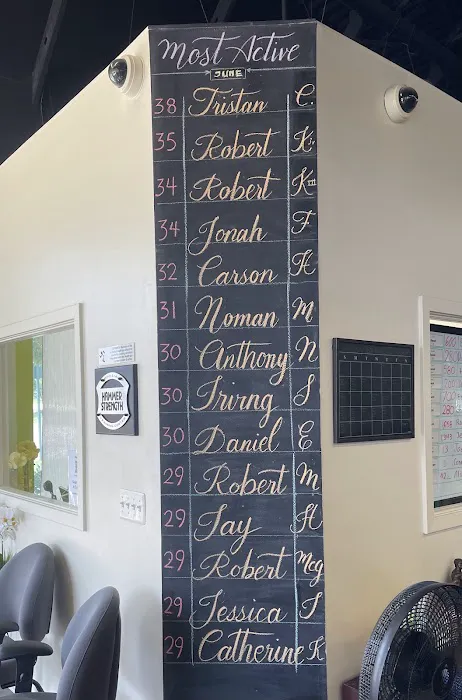 Most Active
JUNE
38 Tristan C.
35 Robert K Jr
34 Robert K III
34 Jonah F
32 Carson H
31 Noman M
30 Anthony N
30 Irving S
30 Daniel E
29 Robert M
29 Jay H
29 Robert Mcg
29 Jessica J
29 Catherine K
HAMMER
STRENGTH